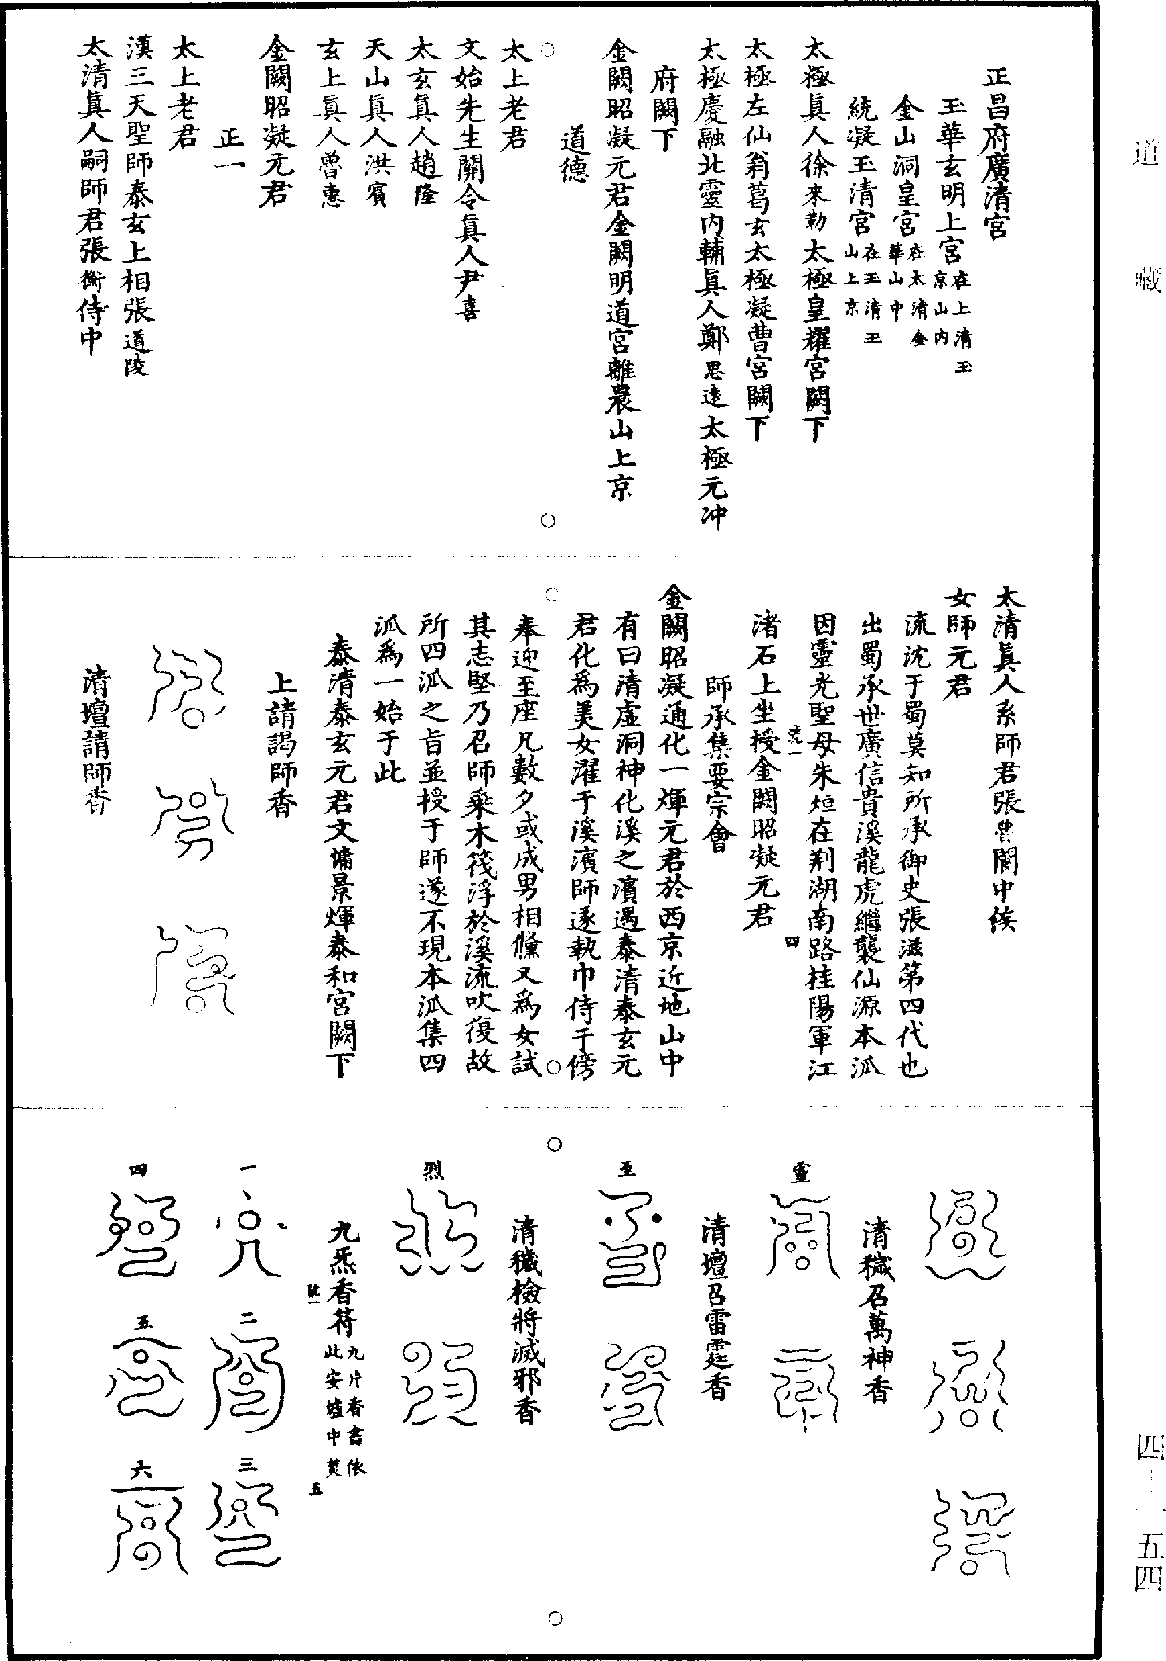 道藏
正昌府廣清宮
玉華玄明上宮在上清玉京山內
金山洞皇宮在太清金華山中
統凝玉清宮在玉清玉山上京
太極眞人徐來勒太極皇耀宮闕下
太極左仙翁葛玄太極凝曹宮闕下
太極慶融北靈內輔眞人鄭思遠太極元冲
府闕下
金闕昭凝元君金闕明道宮離農山上京
道德
太上老君
文始先生關令眞人尹喜
太玄眞人趙隆
天山眞人洪賓
玄上眞人曾惠
金闕昭凝元君
正一
太上老君
漢三天聖師泰玄上相張道陵
太清眞人嗣師君張衡侍中
太清眞人系師君張魯閬中侯
女師元君
流沈于蜀莫知所承御史張滋第四代也
出蜀承世廣信貴溪龍虎繼襲仙源本派
因靈光聖母朱烜在荆湖南路桂陽軍江
渚石上坐授金闕昭凝元君
四
師承集要宗會
金闕昭凝通化一煇元君於西京近地山中
有曰清虛洞神化溪之濱遇泰清泰玄元
君化爲美女濯于溪濱師遂執巾侍于傍
奉迎至座凡數夕或成男相儵又爲女試
其志堅乃召師乘木筏浮於溪流吹復故
所四派之旨並授于師遂不現本派集四
派爲一始于此
泰清泰玄元君文墉景煇泰和宮闕下
上請謁師香
清壇請師香
清穢召萬神香
靈
清壇召雷霆香
至
清穢檢將滅邪香
烈
九炁香符九片香書依此安爐中焚
五
一
二
三
四
五
六
四一一五四